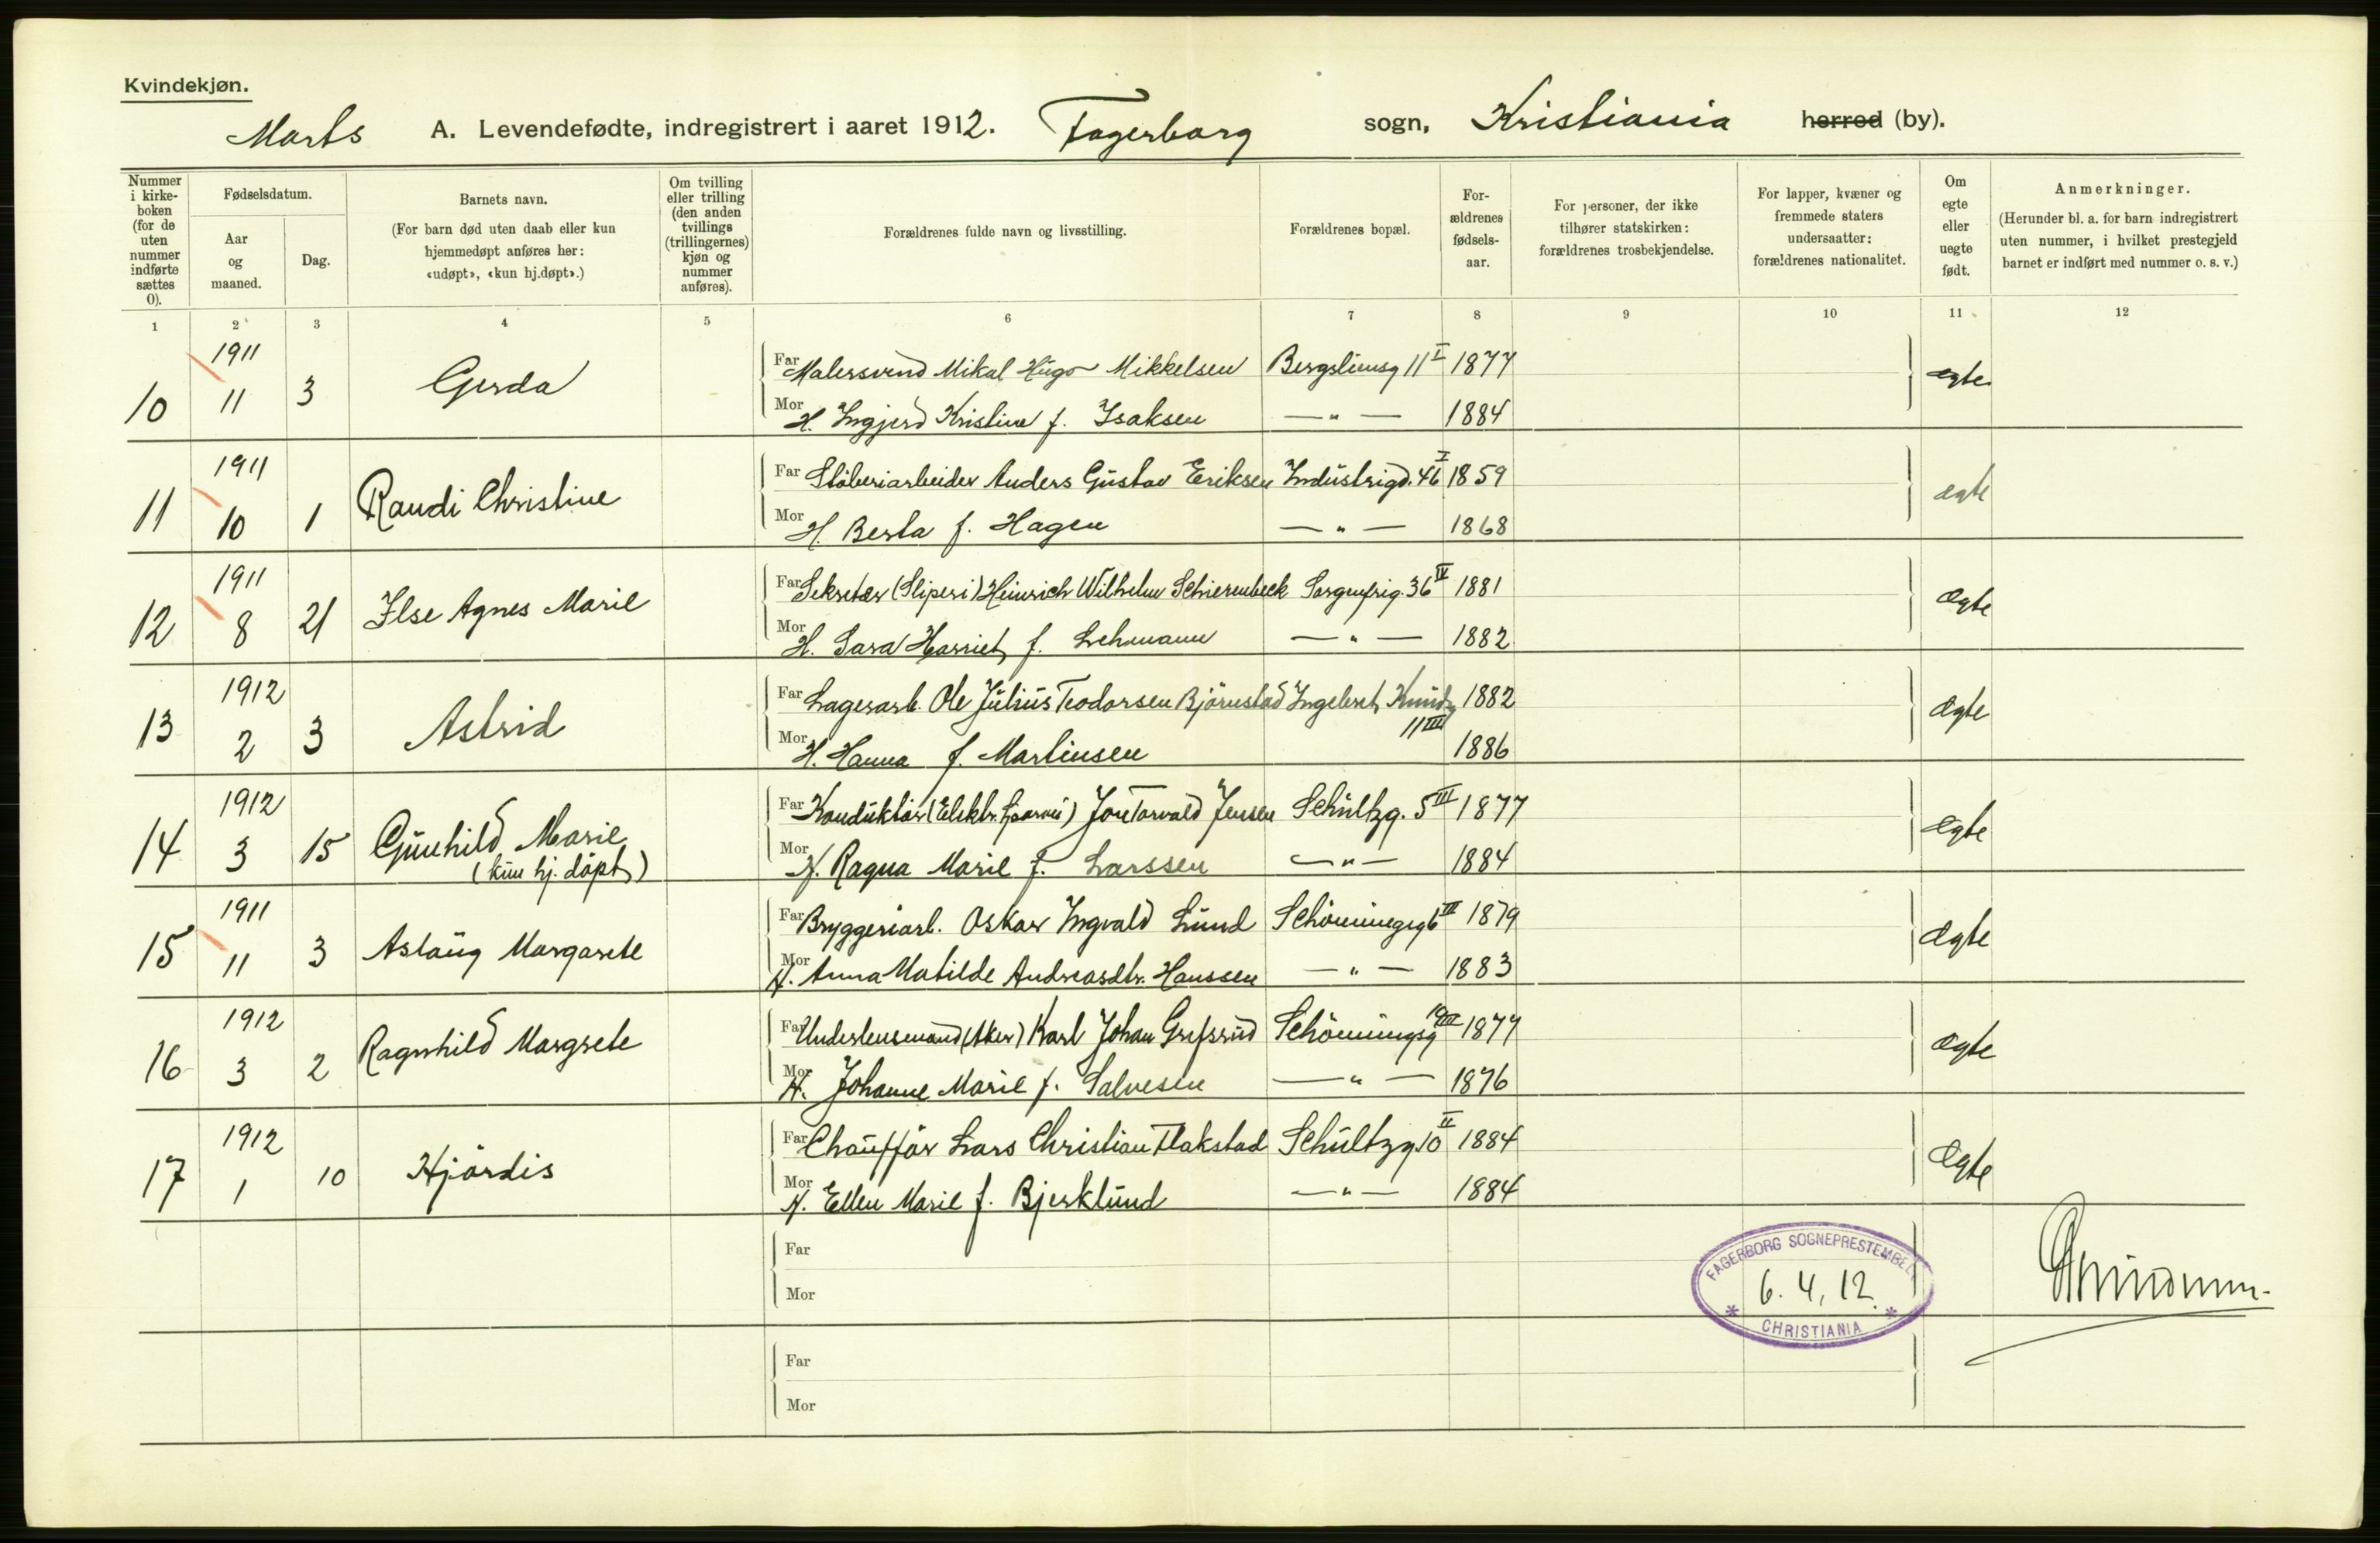 Kvindekjøn.
Marts A. Levendefødte, indregistrert i aaret 1912. Fagerborg sogn, Kristiania herred (by).
Nummer i kirke-boken (for de uten nummer indførte sættes 0).
Fødselsdatum.
Aar og maaned.
Dag.
Barnets navn.
(For barn død uten daab eller kun hjemmedøpt anføres her: «udøpt», «kun hj.døpt».)
Om tvilling eller trilling (den anden tvillings (trillingernes) kjøn og nummer anføres).
Forældrenes fulde navn og livsstilling.
Forældrenes bopæl.
For-ældrenes fødsels-aar.
For personer, der ikke tilhører statskirken: forældrenes trosbekjendelse.
For lapper, kvæner og fremmede staters undersaatter: forældrenes nationalitet.
Om egte eller uegte født.
Anmerkninger.
(Herunder bl. a. for barn indregistrert uten nummer, i hvilket prestegjeld barnet er indført med nummer o. s. v.)
1 2 3 4 5 6 7 8 9 10 11 12
10 1911 11 3 Gerda Far Malersvend Mikal Hugo Mikkelsen Bergsliensg 11 I 1877 egte
Mor H. Ingjerd Kristine f. Isaksen — " — 1884
11 1911 10 1 Randi Christine Far Støberiarbeider Anders Gustav Eriksen Industrigd. 46 I 1859 ægte
Mor H. Berta f. Hagen — " — 1868
12 1911 8 21 Ilse Agnes Marie Far Sekretær (Sliperi) Heinrich Wilhelm Schierenbeck Sorgenfrig. 36 IV 1881 ægte
Mor H. Sara Harriet f. Lehmann — " — 1882
13 1912 2 3 Astrid Far Lagerarb. Ole Julius Teodorsen Bjørnstad Ingelbret Knuds 11 III 1882 ægte
Mor H. Hanna f. Martinsen 1886
14 1912 3 15 Gunhild Marie (kun hj. døpt) Far Konduktør (Elektr. Sporvei) Jon Torvald Jensen Schultzg. 5 III 1877 ægte
Mor H. Ragna Marie f. Larssen — " — 1884
15 1911 11 3 Aslaug Margarete Far Bryggeriarb. Oskar Ingvald Lund Schøningsg 6 III 1879 ægte
Mor H. Anna Matilde Andreasdtr. Hanssen — " — 1883
16 1912 3 2 Ragnhild Margrete Far Underlensmand (Aker) Karl Johan Grefsrud Schøningsg III 1877 ægte
Mor H. Johanne Marie f. Salvesen — " — 1876
17 1912 1 10 Hjørdis Far Chauffør Lars Christian Flakstad Schultzg. 10 II 1884 Ægte
Mor H. Ellen Marie f. Bjerklund — " — 1884
Far
Mor
FAGERBORG SOGNEPRESTEMBED
6. 4. 12.
CHRISTIANIA
Far
Mor